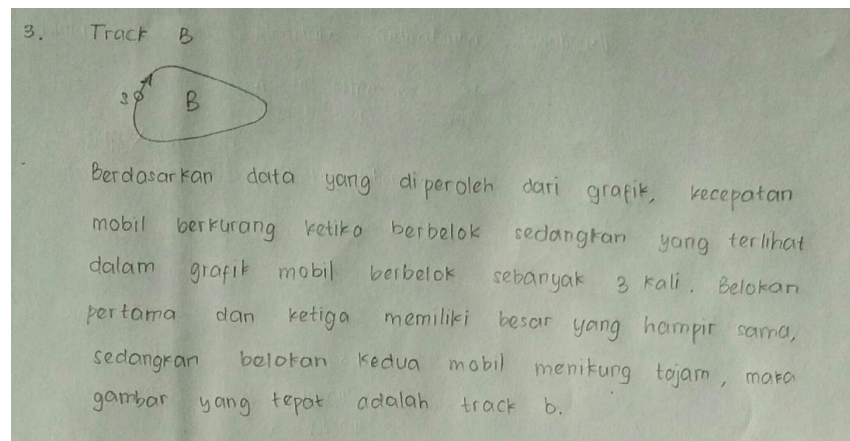 3. Track B
S B
Berdasarkan data yang diperoleh dari grafik, kecepatan
mobil berkurang ketika berbelok sedangkan yang terlihat
dalam grafik mobil berbelok sebanyak 3 kali. Belokan
pertama dan ketiga memiliki besar yang hampir sama,
sedangkan belokan kedua mobil menikung tajam, maka
gambar yang tepat adalah track b.